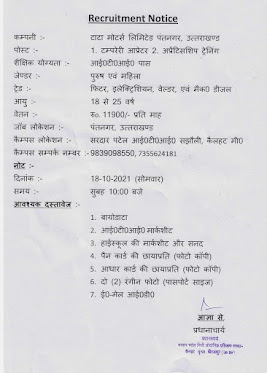 Recruitment Notice
कम्पनी :- टाटा मोटर्स लिमिटेड पंतनगर, उत्तराखण्ड
पोस्ट :- 1. टम्परेरी आप्रेटर 2. अप्रेंटिसशिप ट्रेनिंग
शैक्षिक योग्यता :- आई0टी0आई0 पास
जेण्डर :- पुरुष एवं महिला
ट्रेड :- फिटर, इलेक्ट्रिशियन, वेल्डर, एवं मैक0 डीजल
आयु :- 18 से 25 वर्ष
वेतन :- Rs. 11900/- प्रति माह
जॉब लोकेशन :- पंतनगर, उत्तराखण्ड
कैम्पस लोकेशन :- सरदार पटेल आई0टी0आई0 सझौली, कैलहट मी0
कैम्पस सम्पर्क नम्बर :- 9839098550, 7355624181
नोट :-
दिनांक :- 18-10-2021 (सोमवार)
समय :- सुबह 10:00 बजे
आवश्यक दस्तावेज :-
1. बायोडाटा
2. आई0टी0आई0 मार्कशीट
3. हाईस्कूल की मार्कशीट और सनद
4. पैन कार्ड की छायाप्रति (फोटो कॉपी)
5. आधार कार्ड की छायाप्रति (फोटो कॉपी)
6. दो (2) रंगीन फोटो (पासपोर्ट साइज)
7. ई0-मेल आई0डी0
आज्ञा से.
प्रधानाचार्य
प्रधानाचार्य